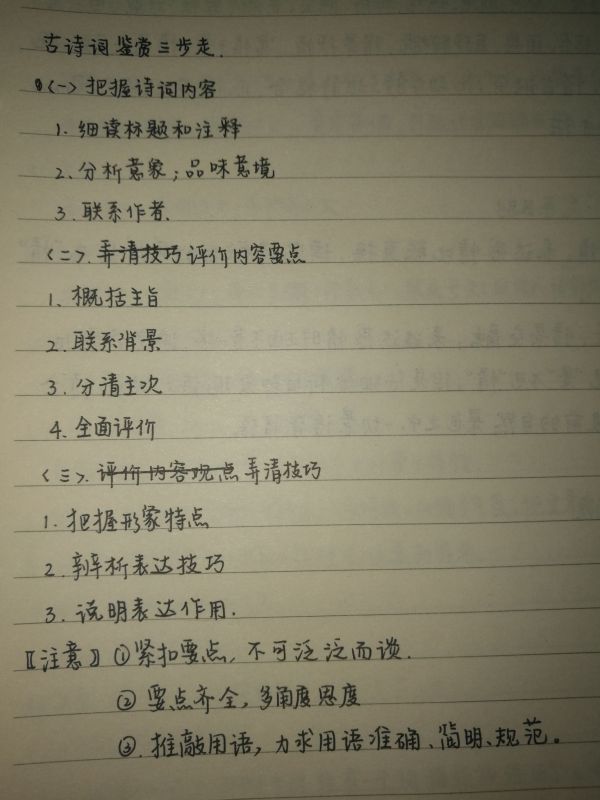 古诗词鉴赏三步走.
(一) 把握诗词内容
1. 细读标题和注释
2. 分析意象；品味意境
3. 联系作者.
(二). 弄清技巧 评价内容要点
1. 概括主旨
2. 联系背景
3. 分清主次
4. 全面评价
(三). 评价内容观点 弄清技巧
1. 把握形象特点
2. 辨析表达技巧
3. 说明表达作用.
〖注意〗①紧扣要点, 不可泛泛而谈.
② 要点齐全, 多角度思度
③. 推敲用语, 力求用语准确、简明、规范。